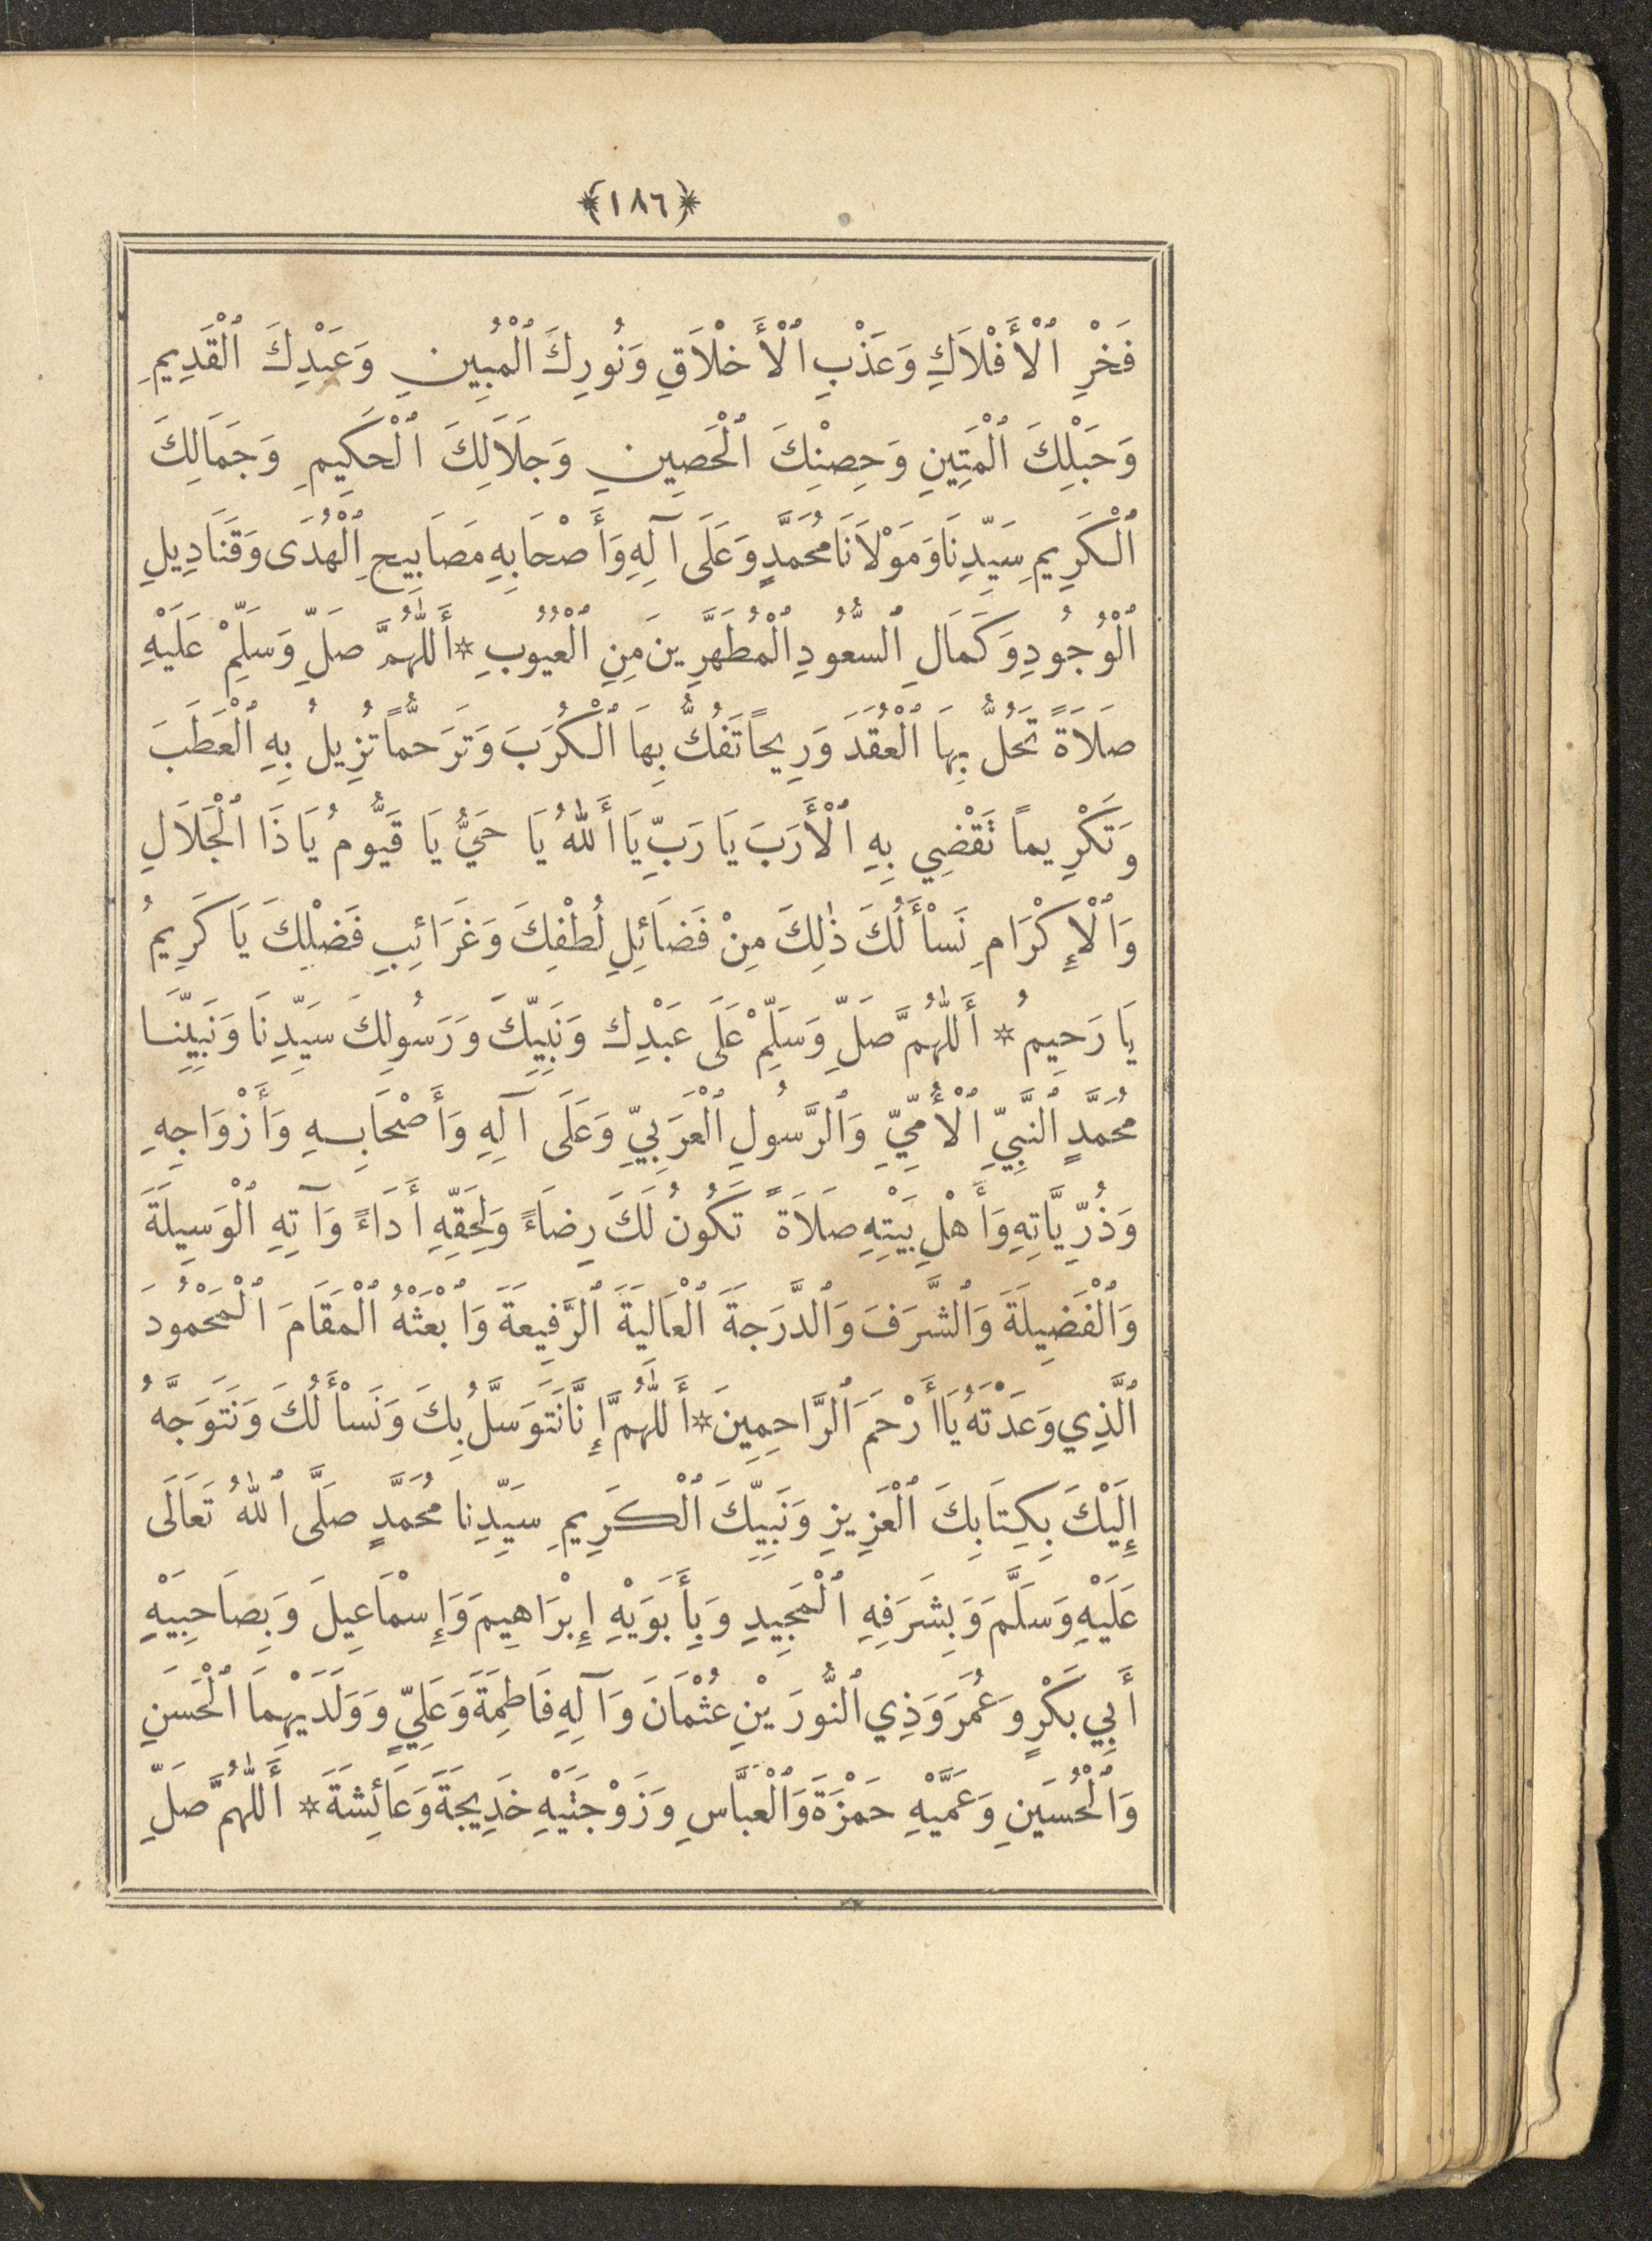 ﴿١٨٦﴾
فَخْرِ ٱلْأَفْلَاكِ وَعَذْبِ ٱلْأَخْلَاقِ وَنُورِكَ ٱلْمُبِينِ وَعَبْدِكَ ٱلْقَدِيمِ
وَحَبْلِكَ ٱلْمَتِينِ وَحِصْنِكَ ٱلْحَصِينِ وَجَلَالِكَ ٱلْحَكِيمِ وَجَمَالِكَ
ٱلْكَرِيمِ سَيِّدِنَا وَمَوْلَانَا مُحَمَّدٍ وَعَلَى آلِهِ وَأَصْحَابِهِ مَصَابِيحِ ٱلْهُدَى وَقَنَادِيلِ
ٱلْوُجُودِ وَكَمَالِ ٱلسُّعُودِ ٱلْمُطَهَّرِينَ مِنِ ٱلْعُيُوبِ * أَللّٰهُمَّ صَلِّ وَسَلِّمْ عَلَيْهِ
صَلَاةً تَحُلُّ بِهَا ٱلْعُقَدَ وَرِيحاً تَفُكُّ بِهَا ٱلْكُرَبَ وَتَرَحُّماً تُزِيلُ بِهِ ٱلْعَطَبَ
وَتَكْرِيماً تَقْضِي بِهِ ٱلْأَرَبَ يَا رَبِّ يَا أَللّٰهُ يَا حَيُّ يَا قَيُّومُ يَا ذَا ٱلْجَلَالِ
وَٱلْإِكْرَامِ نَسْأَلُكَ ذٰلِكَ مِنْ فَضَائِلِ لُطْفِكَ وَغَرَائِبِ فَضْلِكَ يَا كَرِيمُ
يَا رَحِيمُ * أَللّٰهُمَّ صَلِّ وَسَلِّمْ عَلَى عَبْدِكَ وَنَبِيِّكَ وَرَسُولِكَ سَيِّدِنَا وَنَبِيِّنَا
مُحَمَّدٍ ٱلنَّبِيِّ ٱلْأُمِّيِّ وَٱلرَّسُولِ ٱلْعَرَبِيِّ وَعَلَى آلِهِ وَأَصْحَابِهِ وَأَزْوَاجِهِ
وَذُرِّيَّاتِهِ وَأَهْلِ بَيْتِهِ صَلَاةً تَكُونُ لَكَ رِضَاءً وَلِحَقِّهِ أَدَاءً وَآتِهِ ٱلْوَسِيلَةَ
وَٱلْفَضِيلَةَ وَٱلشَّرَفَ وَٱلدَّرَجَةَ ٱلْعَالِيَةَ ٱلرَّفِيعَةَ وَٱبْعَثْهُ ٱلْمَقَامَ ٱلْمَحْمُودَ
ٱلَّذِي وَعَدْتَهُ يَا أَرْحَمَ ٱلرَّاحِمِينَ * أَللّٰهُمَّ إِنَّا نَتَوَسَّلُ بِكَ وَنَسْأَلُكَ وَنَتَوَجَّهُ
إِلَيْكَ بِكِتَابِكَ ٱلْعَزِيزِ وَنَبِيِّكَ ٱلْكَرِيمِ سَيِّدِنا مُحَمَّدٍ صَلَّى ٱللّٰهُ تَعَالَى
عَلَيْهِ وَسَلَّمَ وَبِشَرَفِهِ ٱلْمَجِيدِ وَبِأَبَوَيْهِ إِبْرَاهِيمَ وَإِسْمَاعِيلَ وَبِصَاحِبَيْهِ
أَبِي بَكْرٍ وَعُمَرَ وَذِي ٱلنُّورَيْنِ عُثْمَانَ وَآلِهِ فَاطِمَةَ وَعَلِيٍّ وَوَلَدَيْهِمَا ٱلْحَسَنِ
وَٱلْحُسَيْنِ وَعَمَّيْهِ حَمْزَةَ وَٱلْعَبَّاسِ وَزَوْجَتَيْهِ خَدِيجَةَ وَعَائِشَةَ * أَللّٰهُمَّ صَلِّ